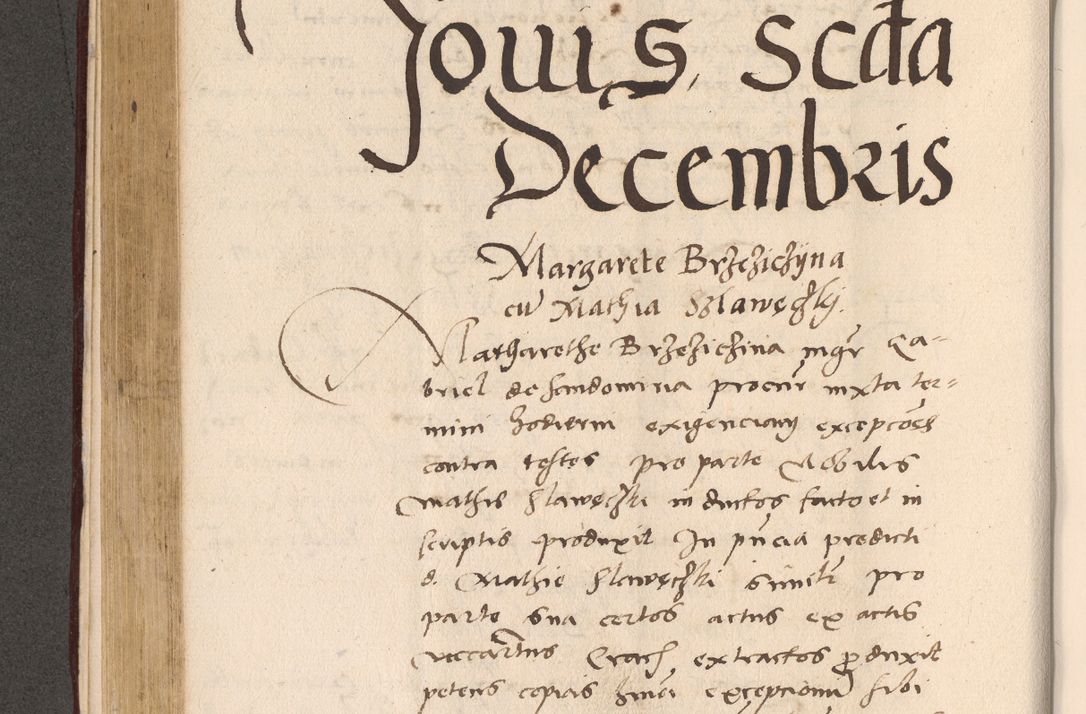 Jouis, Scda
Decembris
Margarete Brzeziczyna
cu Mathia Szlawęczky.
Margarethe Brzeziczina mgr Ga-
briel de sandomiria procur iuxta ter-
mini hodierni exigenciam excepcoes
contra testes pro parte Nobilis
Mathie Slawęczki inductos facto et in
scriptis produxit In pncia predicti
d. Mathie Slawęczki similr pro
parte sua certos actus ex actis
viccariatus Crac. extractos produxit
petens copias hmoi excepcionum sibi